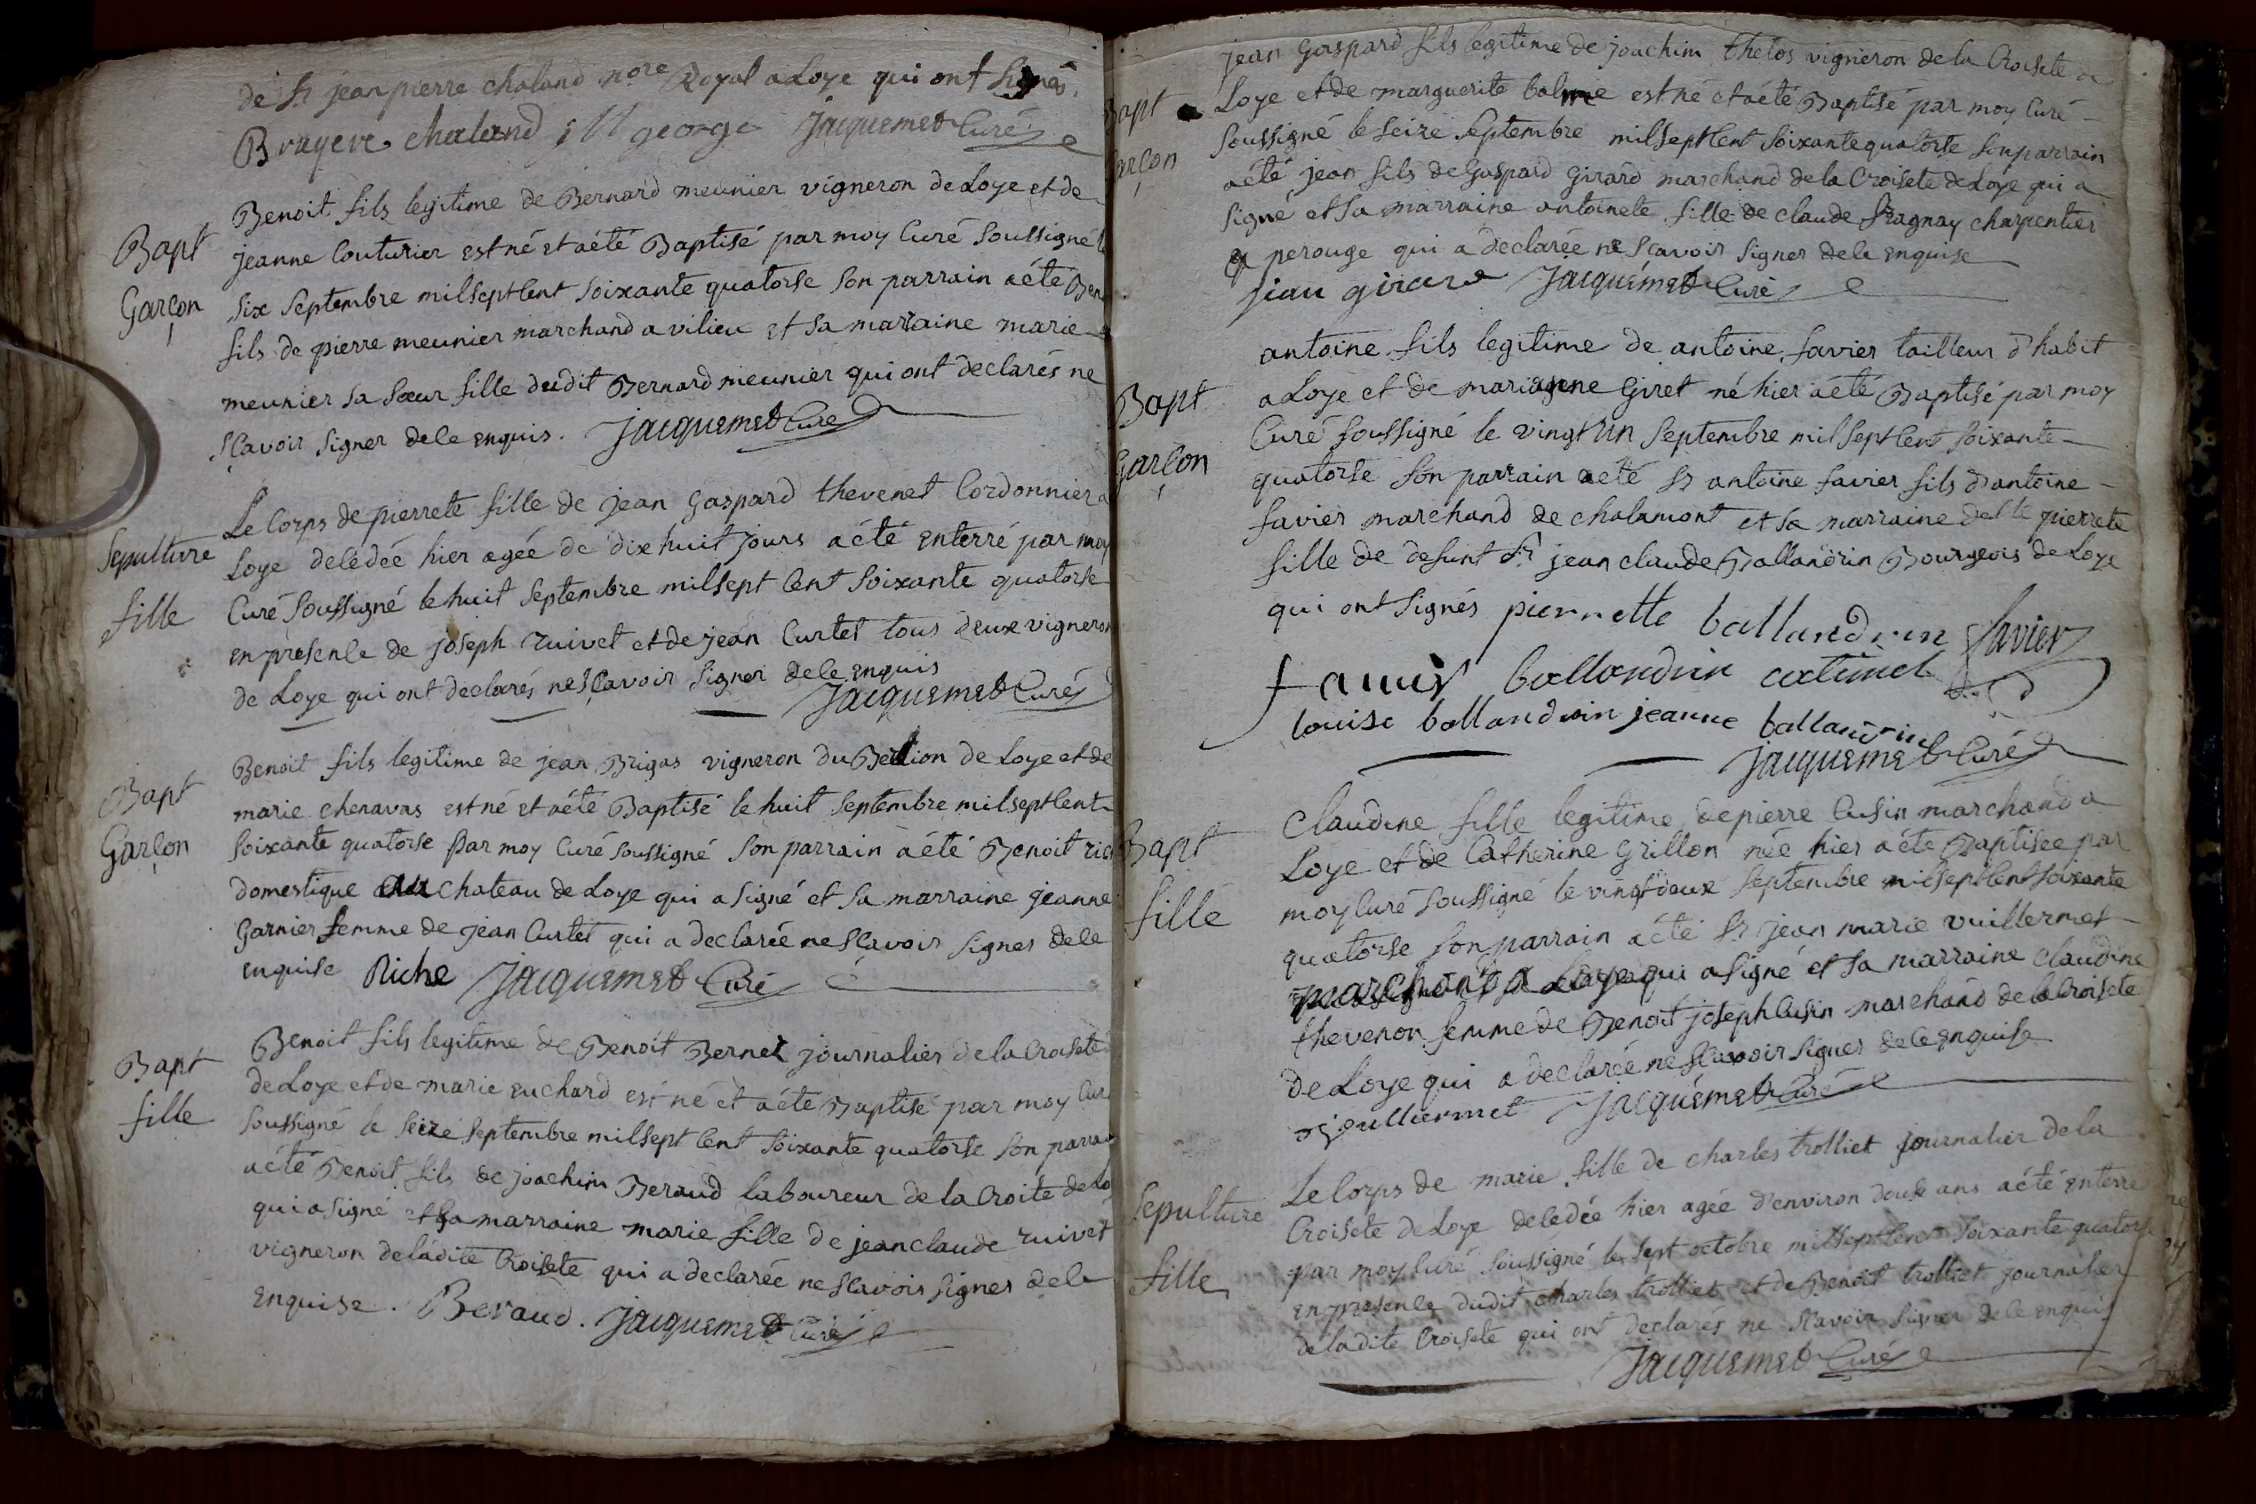 de Sr jean pierre chaland nore Royal a Loye qui ont signés.
Bruyere chaland george Jacquemet Curé
Bapt
Garçon
Benoit fils legitime de Bernard meunier vigneron de Loye et de
jeanne Couturier est né et a été Baptisé par moy Curé soussigné le
six septembre mil sept Cent soixante quatorse son parrain a été
fils de pierre meunier marchand a vilieu et sa marraine marie
meunier sa sœur fille dudit Bernard meunier qui ont declarés ne
sçavoir signer de ce enquis. Jacquemet Curé
Sepulture
fille
Le Corps de pierrete fille de jean Gaspard thevenet Cordonnier a
Loye decedée hier agée de dix huit jours a été enterré par moy
Curé soussigné le huit septembre mil sept Cent soixante quatorse
en presence de joseph ruivet et de jean Curtet tous deux vigneron
de Loye qui ont declarés ne sçavoir signer de ce enquis
Jacquemet Curé
Bapt
Garçon
Benoit fils legitime de jean Brigas vigneron du de Loye et de
marie chenavas est né et a été Baptisé le huit septembre mil sept Cent
soixante quatorse par moy Curé soussigné son parrain a été Benoit
domestique au chateau de Loye qui a signé et sa marraine jeanne
Garnier femme de jean Curtet qui a declarée ne sCavoir signer de ce
enquise Riche Jacquemet Curé
Bapt
fille
Benoit fils legitime de Benoit Bernet journalier de la Croisete
de Loye et de marie euchard est né et a été Baptisé par moy Curé
soussigné le seize septembre mil sept Cent soixante quatorse son parrain
a été Benoit fils de joachim Beraud laboureur de la Croite de
qui a signé et sa marraine marie fille de jean claude ruivet
vigneron de ladite Croisete qui a declarée ne sCavoir signer de ce
enquise. Beraud. Jacquemet Curé
Bapt
Garçon
jean Gaspard fils legitime de joachim thelos vigneron de la Croisete a
Loye et de marguerite balme est né et a été Baptisé par moy Curé
soussigné le seize septembre mil sept Cent soixante quatorse son parrain
a été jean fils de Gaspard Girard marchand de la Croisete de Loye qui a
signé et sa marraine antoinete fille de claude charpentier
a perouge qui a declarée ne sCavoir signer de ce enquise
jean girard Jacquemet Curé
Bapt
Garçon
antoine fils legitime de antoine favier tailleur d'habit
a Loye et de mariagne Giret né hier a été Baptisé par moy
Curé soussigné le vingt un septembre mil sept Cent soixante
quatorse son parrain a été Sr antoine favier fils d'antoine
favier marchand de chalamont et sa marraine delle pierrete
fille de defunt Sr jean claude Ballandrin Bourgeois de Loye
qui ont signés pierrette ballandrin favier
ballandrin
louise ballandrin jeanne ballandrin
Jacquemet Curé
Bapt
fille
Claudine fille legitime de pierre Cusin marchand a
Loye et de Catherine Grillon née hier a été Baptisée par
moy Curé soussigné le vingt deux septembre mil sept Cent soixante
quatorse son parrain a été Sr jean marie vuillermet
marchand a Loye qui a signé et sa marraine claudine
thevenon femme de Benoit joseph Cusin marchand de la Croisete
de Loye qui a declarée ne sCavoir signer de ce enquise
Jacquemet Curé
Sepulture
fille
Le Corps de marie fille de charles trolliet journalier de la
Croisete de Loye decedée hier agée d'environ douse ans a été enterré
par moy Curé soussigné le sept octobre mil sept Cent soixante quatorse
en presence dudit charles trolliet et de Benoit trolliet journalier
de ladite Croisete qui ont declarés ne sCavoir signer de ce enquis
Jacquemet Curé